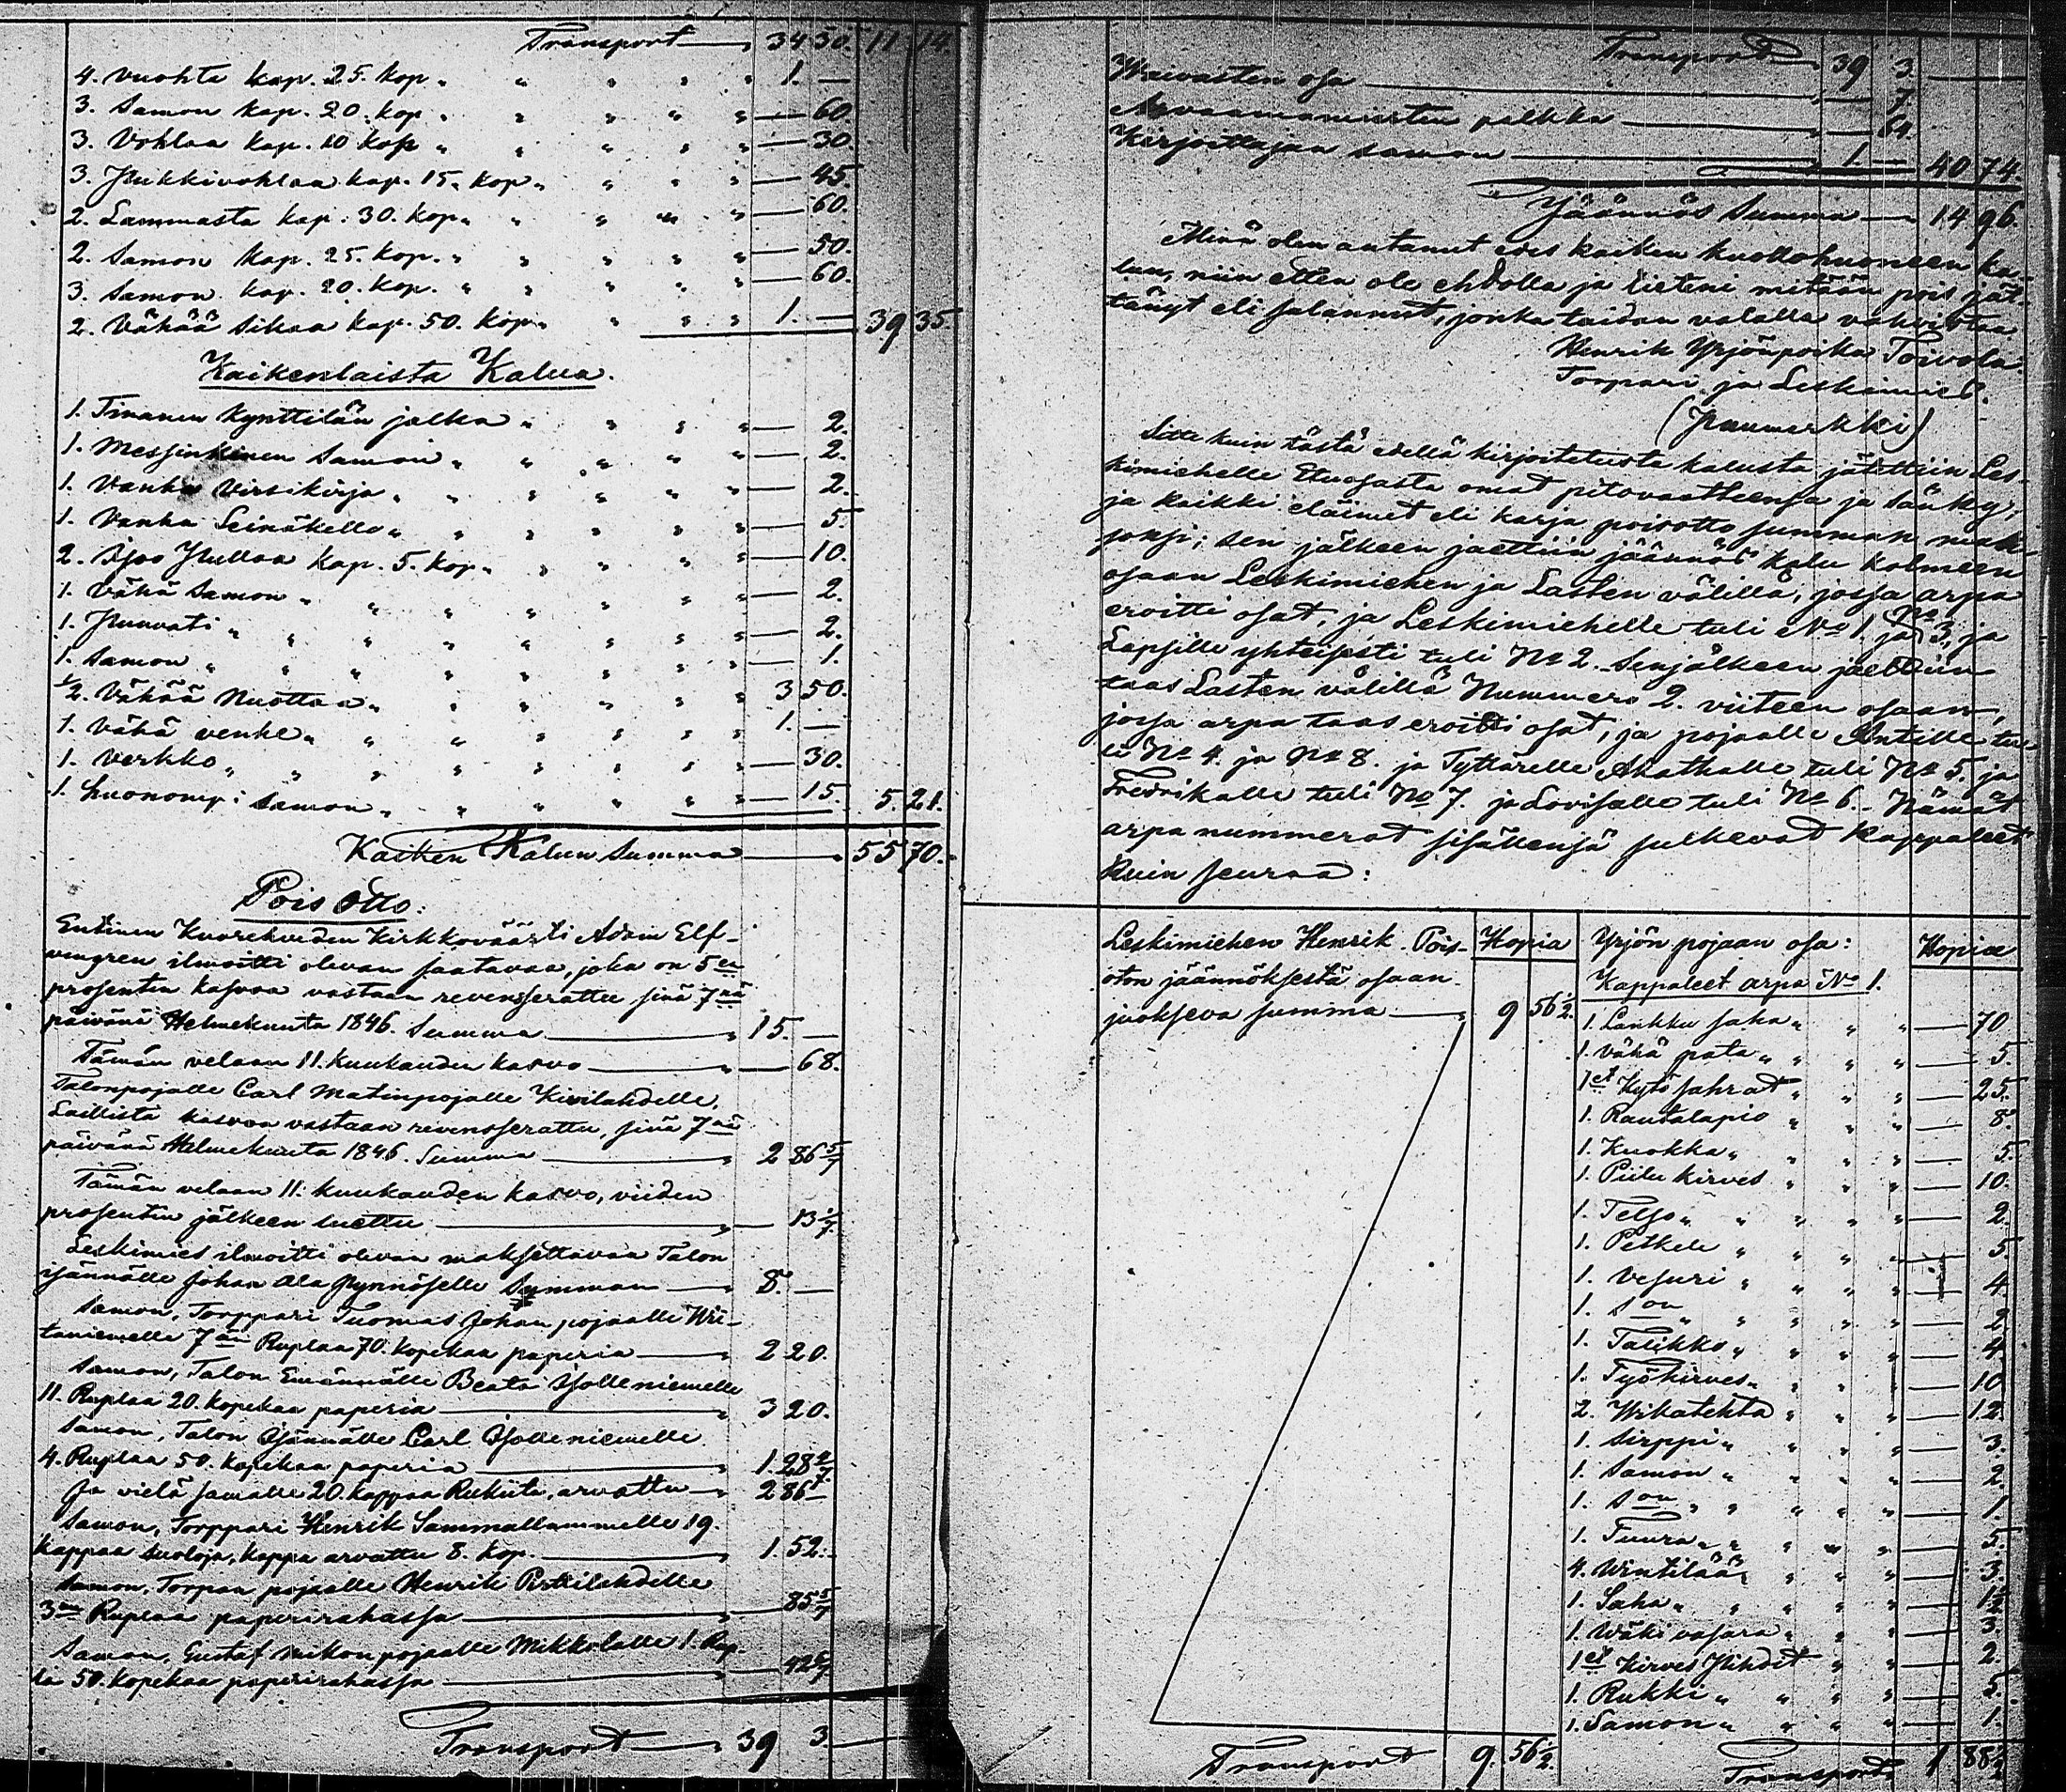 Transport 34 50. 11 14
4. Vuohta kap. 25. kop. " " " " 1. —
3. Samon kap. 20. kop. " " " " — 60
3. Vohlaa kap. 10 kop " " " " — 30
3. Pukkivohlaa kap. 15. kop. " " " — 45.
2. Lammasta kap. 30. kop. " " " " — 60.
2. Samon kap. 25. kop. " " " " — 50.
3. Samon kap. 20. kop. " " " " — 60.
2. Vähää Sikaa kap. 50. kop. " " " 1. — 39 35
Kaikenlaista Kalua.
1. Tinanen kynttilän jalka " " " " — 2.
1. Messinkinen Samon " " " " — 2.
1. Vanha Virsikirja " " " " " — 2.
1. Vanha Seinäkello " " " " " — 5.
2. Isoo Pulloa kap. 5. kop. " " " " — 10.
1. Vähä Samon " " " " " " — 2.
1. Puuvati " " " " " " " — 2.
1. Samon " " " " " " " — 1.
1/2. Vähää Nuottaa " " " " " 3 50.
1. Vähä venhe " " " " " " 1. —
1. Verkko " " " " " " " — 30.
1. huonomp: Samon " " " " " — 15. 5. 21.
Kaiken Kalun Summa — 55 70.
Pois Otto:
Entinen Kuoreveden Kirkkoväärti Adam Elf-
vengren ilmoitti olevan saatavaa, joka on 5en
prosentin kasvoa vastaan revenserattu sinä 7nä
päivänä Helmekuuta 1846. Summa — 15. —
Tämän velaan 11. kuukauden kasvo — — 68.
Talonpojalle Carl Matinpojalle Kivilahdelle,
Laillista kasvoa vastaan revenserattu, sinä 7nä
päivänä Helmekuuta 1846. Summa — 2 86 5/7
Tämän velaan 11. kuukauden kasvo, viiden
prosentin jälkeen luettu — — 13 1/7
Leskimies ilmoitti olevan maksettavaa Talon
isännälle Johan Ala Pynnöselle Summan — 8. —
Samon, Torppari Tuomas Johan pojaalle
taniemelle 7än Ruplaa 70. kopekaa paperia — 2 20.
Samon, Talon Emännälle Beata niemelle
11. Ruplaa 20. kopekaa paperia — 3 20.
Samon, Talon Isännälle Carl niemelle
4. Ruplaa 50. kopekaa paperia — 1. 28 4/7
Ja vielä samalle 20. kappaa Rukiita, arvattu — 2 86 —
Samon, Torppari Henrik Sammallammelle 19.
kappaa suoloja, kappa arvattu 8. kop. — 1. 52.
Samon, Torpan pojaalle Henrik
3me Ruplaa paperirahassa — — 85 5/7
Samon, Gustaf Mikonpojaalle Mikkolalle 1. Rup-
la 50. kopekaa paperirahassa — — 42 6/7
Transport — 39 3. —
Transport 39 3. —
Waivasten osa — — 7.
Arvaamamiesten palkka — — 64.
Kirjoittajan samon — 1. — 40 74.
Jäännös Summa — 14 96.
Minä olen antanut edes kaiken kuollohuoneen ka-
lun, niin etten ole ehdolla ja tieteni mitään pois jät-
tänyt eli salannut, jonka taidan valalla vahvistaa
Henrik Yrjönpoika Toivola.
Torpari ja Leskimies.
(Puumerkki)
Sitte kuin tästä edellä kirjoitetusta kalusta jätettiin Les-
kimiehelle Etuosasta omat pitovaatteensa ja Sänky,
ja kaikki eläimet eli karja poisotto summan mak-
soksi; sen jälkeen jaettiin jäännös kalu kolmeen
osaan Leskimiehen ja Lasten välillä, jossa arpa
eroitti osat, ja Leskimiehelle tuli No 1. ja No 3, ja
Lapsille yhteisesti tuli No 2. Senjälkeen jaettiin
taas Lasten välillä Nummero 2. viiteen osaan,
jossa arpa taas eroitti osat, ja pojaalle Antille tu-
li No 4. ja No 8. ja Tyttärelle Akathalle tuli No 5. ja
Fredrikalle tuli No 7. ja Lovisalle tuli No 6. Nämät
arpa nummerot sisällensä sulkevat kappaleet
kuin seuraa:
Leskimiehen Henrik Pois-
oton jäännöksestä osaan
juokseva summa — 9 56 1/2.
Hopia
Transport 9. 56 1/2.
Yrjön pojaan osa: Hopia
Kappaleet arpa No 1.
1. Lankku saha " " " — 70
1. Vähä pata " " " " — 5.
1et Kytö sahrat " " " — 25.
1. Rautalapio " " " — 8.
1. Kuokka " " " " — 5.
1. Piilu kirves " " " — 10.
1. Telso " " " " — 2.
1. Petkele " " " " — 5.
1. Vesuri " " " " — 4.
1. Son " " " " — 2.
1. Talikko " " " " — 4.
1. Työkirves " " " — 10
2. Wikatehta " " " — 12.
1. Sirppi " " " " — 3.
1. Samon " " " " — 2.
1. Son " " " " — 1.
1. Tuura " " " " — 5.
4. Wintilää " " " — 3.
1. Saha " " " " — 1 1/2
1. Wäki vasara " " " — 3.
1et Kirves Pihdit " " — 2.
1. Rukki " " " " — 5.
1. Samon " " " " — 1.
Transport 1 88 1/2